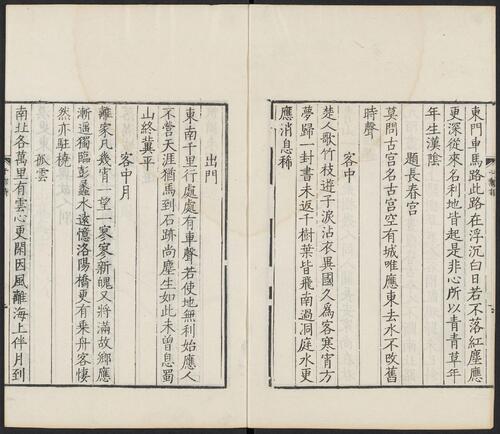 東門車馬路此路在浮沉白日若不落紅塵應
更深從來名利地皆起是非心所以青青草年
年生漢陰
題長春宮
莫問古宮名古宮空有城唯應東去水不改舊
時聲
客中
楚人歌竹枝遊子淚沾衣異國久爲客寒宵方
夢歸一封書未返千樹葉皆飛南過洞庭水更
應消息稀
出門
東南千里行處處有車聲若使地無利始應人
不營天涯猶馬到石跡尚塵生如此未曾息蜀
山終冀平
客中月
離家凡幾宵一望一寥寥新魄又將滿故鄉應
漸遙獨臨彭蠡水遠憶洛陽橋更有乘舟客悽
然亦駐橈
孤雲
南北各萬里有雲心更閑因風離海上伴月到